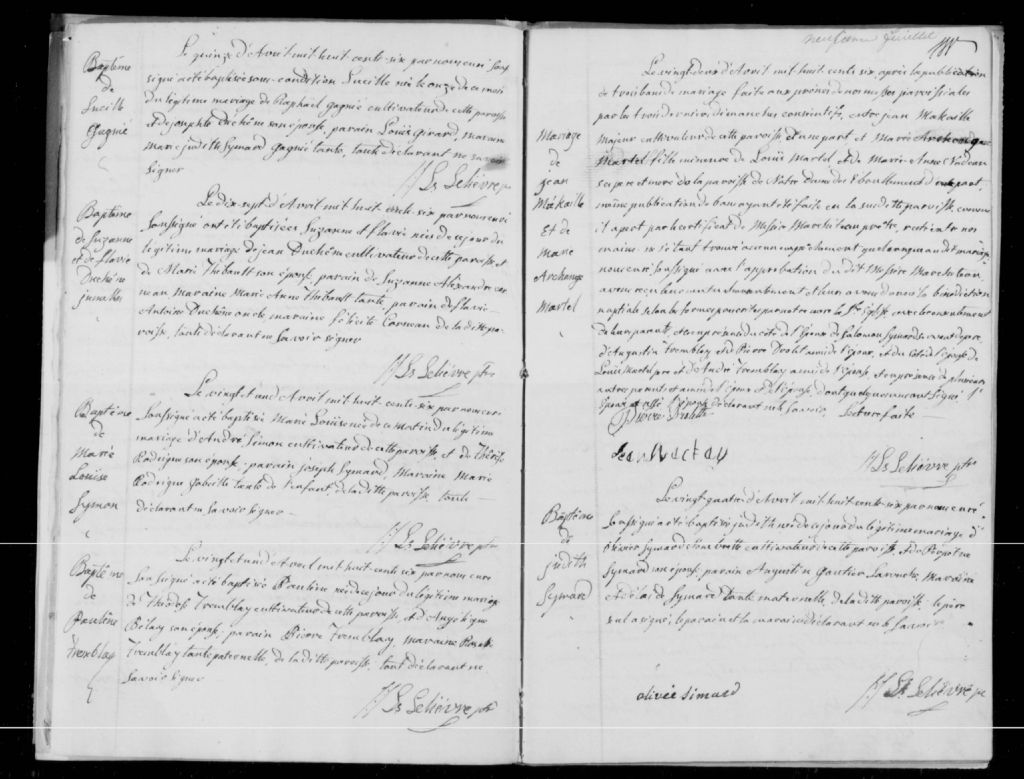 Baptême
de
Lucille
Gagné
Le quinze d'Avril mil huit cents six par nous curé sous
signé a été baptisée sous condition Lucille née le onze de ce mois
du légitime mariage de Raphael Gagné cultivateur de cette paroisse
et de josephte Duchêne son épouse, parain Louis Girard, maraine
marie judith Symard Gagné tante, tante déclarant ne savoir
signer
Ls Lelièvre ptre
Baptême
de Suzanne
et de flavie
Duchêne
jumelles
Le dix sept d'Avril mil huit cents six par nous curé
soussigné ont été baptisées Suzanne et flavie nées de ce jour du
légitime mariage de jean Duchêne cultivateur de cette paroisse et
de Marie Thibault son épouse, parain de Suzanne Alexandre
maraine Marie Anne Thibault tante, parain de flavie
Antoine Duchêne oncle maraine félicité de la ditte pa-
roisse, tante déclarant ne savoir signer
Ls Lelièvre ptre
Baptême
de
Marie
Louise
Symon
Le vingt et un d'Avril mil huit cents six par nous curé
soussigné a été baptisée Marie Louise née de ce matin du légitime
mariage d'André Simon cultivateur de cette paroisse, et de Thérèse
Rodrigue son épouse, parain joseph Symard, Maraine Marie
Rodrigue tante de l'enfant, de la ditte paroisse tante
déclarant ne savoir signer
Ls Lelièvre ptre
Baptême
de
Pauline
Tremblay
Le vingt et un d'Avril mil huit cents six par nous curé
sousigné a été baptisée Pauline née de ce jour du légitime mariage
de Théodose Tremblay cultivateur de cette paroisse, et d'Angélique
son épouse, parain Pierre Tremblay, maraine
Tremblay tante paternelle, de la ditte paroisse, tant déclarant ne
savoir signer
Ls Lelièvre ptre
feuillet
Mariage
de
jean
Makaille
Et de
Marie
Archange
Martel
Le vingt deux d'Avril mil huit cents six, après la publication
de trois bans de mariage faite aux prônes de nos messes paroissiales
par les trois derniers dimanches consécutifs, entre jean Makaille
Majeur cultivateur de cette paroisse d'une part et Marie Archange
Martel fille mineure de Louis Martel et de Marie Anne
ses père et mère de la paroisse de Notre Dame des Eboullements d'autre part,
même publication de bans ayant été faite en la susditte paroisse comme
il apert par le certificat de Messire Marcheteau prêtre, resté entre nos
mains, ne s'étant trouvé aucun empêchement quelconque au dit mariage
nous curé soussigné avec l'approbation du dit Messire Marcheteau
avons reçu leur mutuel consentement et leur avons donné la bénédiction
nuptiale selon la forme prescrite par notre mère la Ste Eglise
de leurs parents, et en présence du côté de l'époux de Salomon Symard
d'Augustin Tremblay et de Pierre Drolet amis de l'époux, et du côté de l'épouse de
Louis Martel père et de André Tremblay ami de l'épouse et en présence de plusieurs
autres parents et amis de l'époux et de l'épouse dont quelques uns ont signé l'
époux et l'épouse déclarant ne le savoir. Lecture faite
Pierre Drolette
Jean Mackay
Ls Lelièvre ptre
Baptême
de
judith
Symard
Le vingt quatre d'Avril mil huit cents six par nous curé
soussigné a été baptisée judith née de ce jour du légitime mariage d'
Olivier Symard cultivateur de cette paroisse, et de
Symard son épouse, parain Augustin Gautier Larouche, Maraine
Adélaïde Symard tante maternelle, de la ditte paroisse le père
seul a signé, le parain et la maraine déclarant ne le savoir
olivée simard
Ls Lelièvre ptre